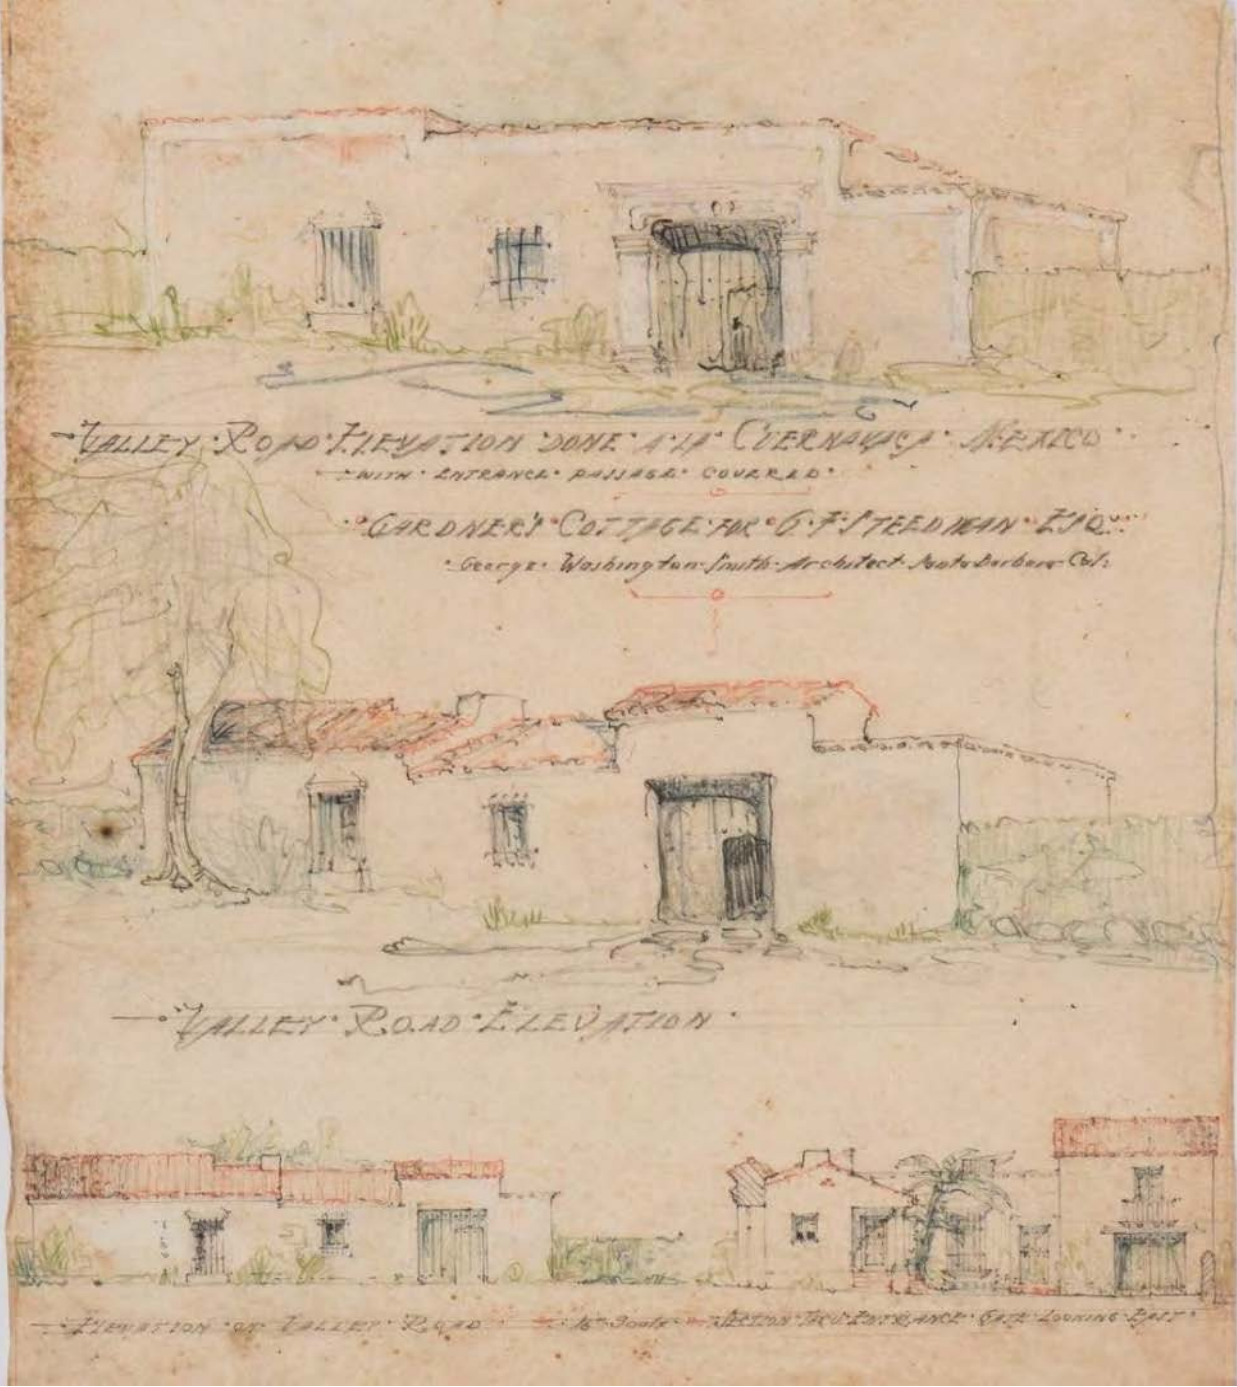 VALLEY · ROAD · ELEVATION DONE · A · LA · CUERNAVACA · MEXICO ·
WITH · ENTRANCE · PASSAGE · COVERED ·
· GARDNER'S · COTTAGE · FOR · G · F · STEEDMAN · ESQ
· George · Washington · Smith · Architect · Santa Barbara · Cal:
VALLEY · ROAD · ELEVATION ·
ELEVATION · ON · VALLEY · ROAD Scale SECTION THRU ENTRANCE · GATE LOOKING EAST ·